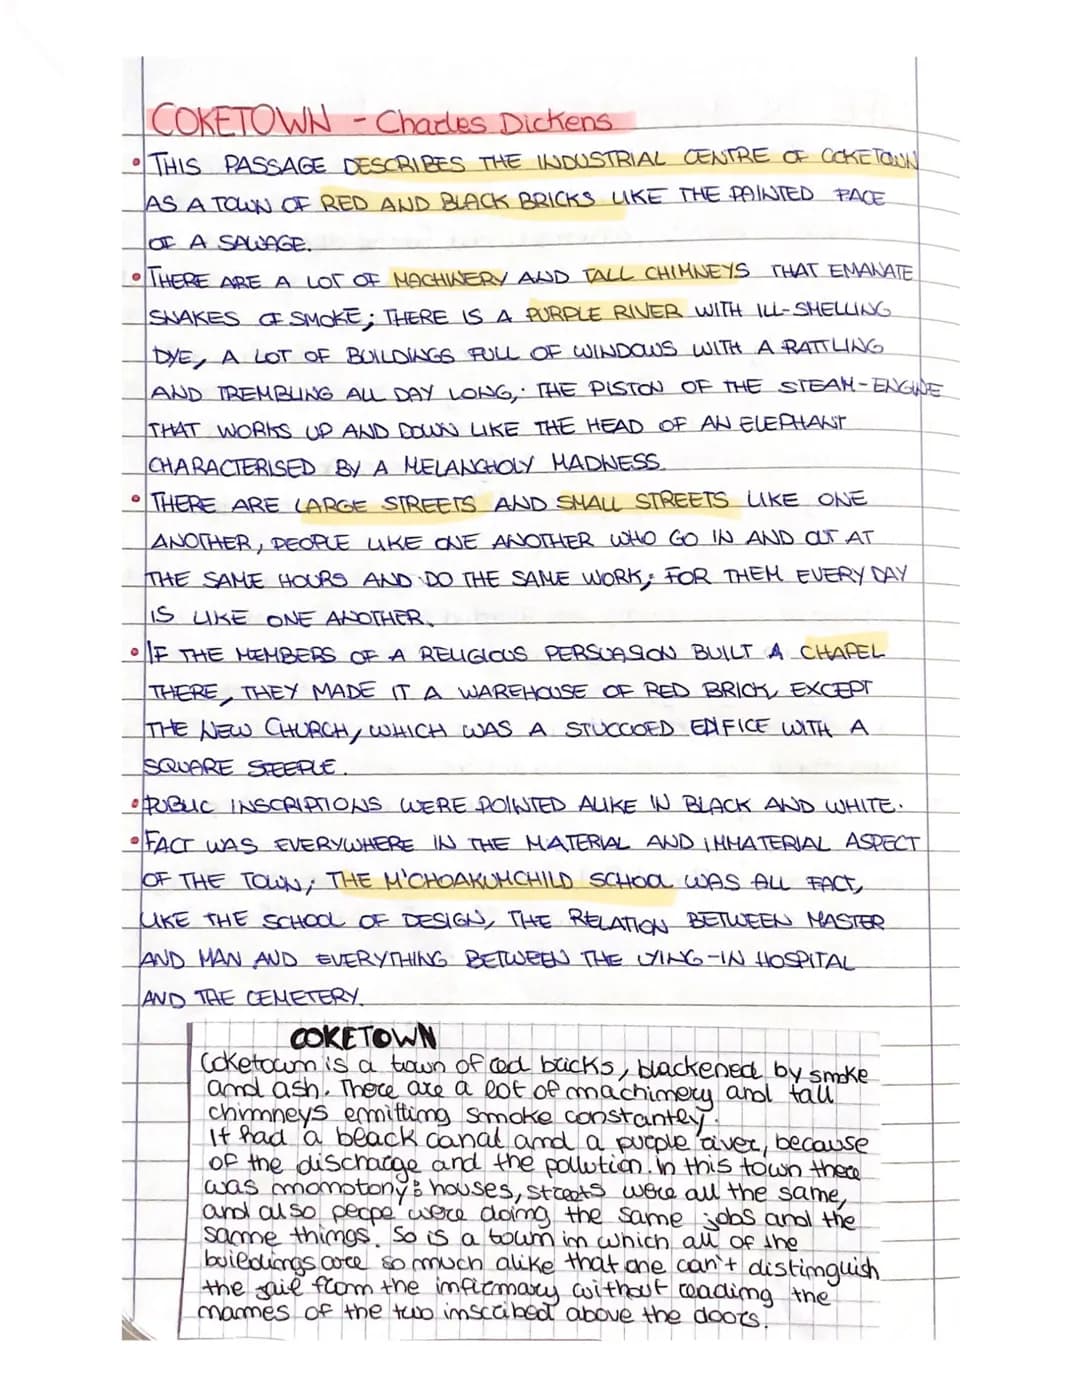 COKETOWN - Charles Dickens
• THIS PASSAGE DESCRIBES THE INDUSTRIAL CENTRE OF COKETOWN
AS A TOWN OF RED AND BLACK BRICKS LIKE THE PAINTED FACE
OF A SAVAGE.
• THERE ARE A LOT OF MACHINERY AND TALL CHIMNEYS THAT EMANATE
SNAKES OF SMOKE; THERE IS A PURPLE RIVER WITH ILL-SMELLING
DYE, A LOT OF BUILDINGS FULL OF WINDOWS WITH A RATTLING
AND TREMBLING ALL DAY LONG; THE PISTON OF THE STEAM-ENGINE
THAT WORKS UP AND DOWN LIKE THE HEAD OF AN ELEPHANT
CHARACTERISED BY A MELANCHOLY MADNESS.
• THERE ARE LARGE STREETS AND SMALL STREETS LIKE ONE
ANOTHER, PEOPLE LIKE ONE ANOTHER WHO GO IN AND OUT AT
THE SAME HOURS AND DO THE SAME WORK; FOR THEM EVERY DAY
IS LIKE ONE ANOTHER.
• IF THE MEMBERS OF A RELIGIOUS PERSUASION BUILT A CHAPEL
THERE, THEY MADE IT A WAREHOUSE OF RED BRICK, EXCEPT
THE NEW CHURCH, WHICH WAS A STUCCOED EDIFICE WITH A
SQUARE STEEPLE.
• PUBLIC INSCRIPTIONS WERE POINTED ALIKE IN BLACK AND WHITE.
• FACT WAS EVERYWHERE IN THE MATERIAL AND IMMATERIAL ASPECT
OF THE TOWN; THE M'CHOAKUMCHILD SCHOOL WAS ALL FACT,
LIKE THE SCHOOL OF DESIGN, THE RELATION BETWEEN MASTER
AND MAN AND EVERYTHING BETWEEN THE LYING-IN HOSPITAL
AND THE CEMETERY.
COKETOWN
Coketown is a town of red bricks, blackened by smoke
and ash. There are a lot of machinery and tall
chimneys emitting smoke constantly.
It had a black canal and a purple river, because
of the discharge and the pollution. In this town there
was monotony: houses, streets were all the same,
and also peope were doing the same jobs and the
same things. So is a town in which all of the
buildings are so much alike that one can't distinguish
the jail from the infirmary without reading the
names of the two inscribed above the doors.